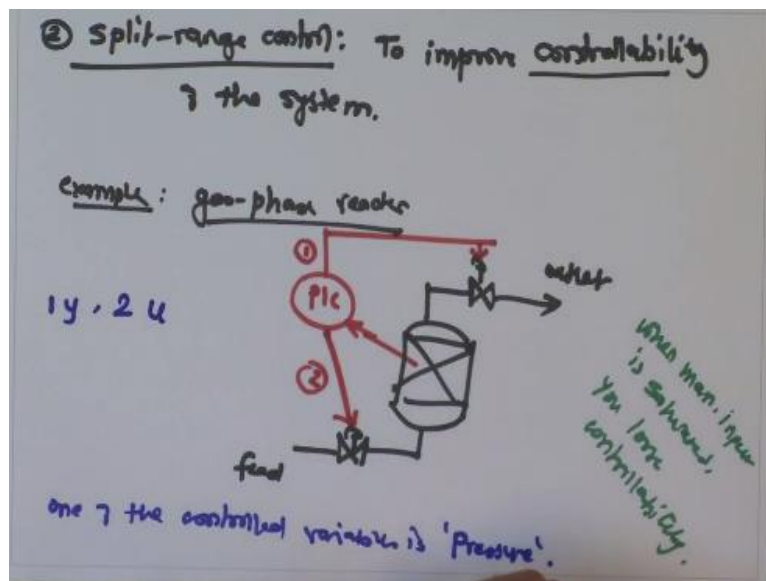 ② Split-range control: To improve controllability
of the system.
example: gas-phase reactor
①
outlet
PIC
1y, 2u
②
when man. input
is saturated,
you loose
controllability.
feed
one of the controlled variables is 'Pressure'.